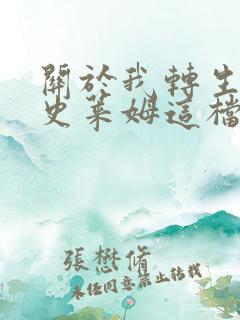 關於我轉生
史萊姆這檔
張懋脩
未經同意禁止轉載